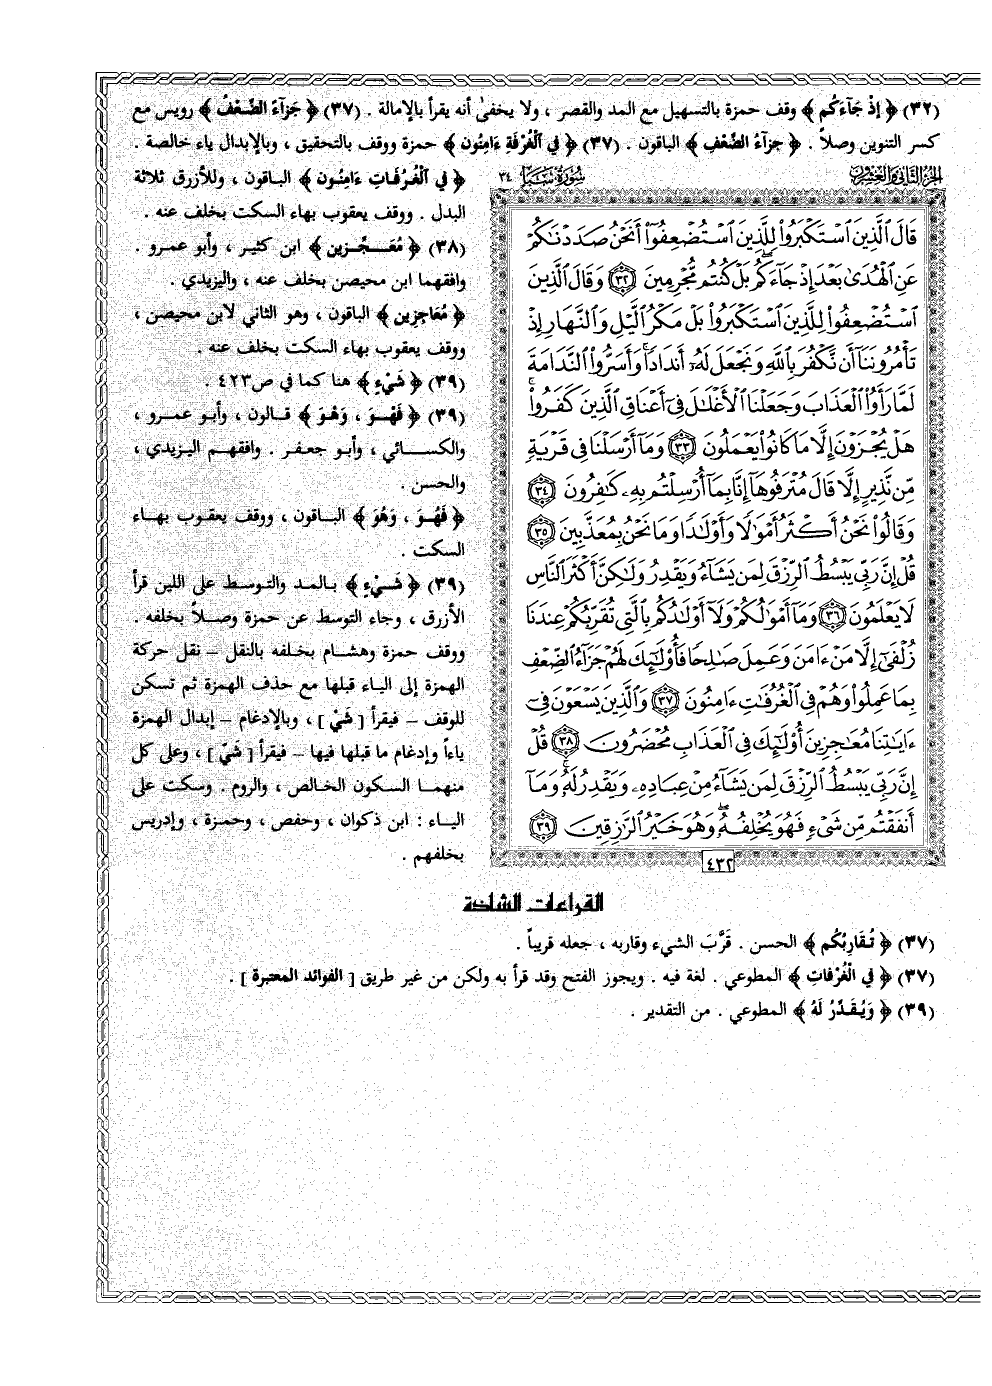 (٣٢) ﴿ إِذْ جَآءَكُم ﴾ وقف حمزة بالتسهيل مع المد والقصر ، ولا يخفىٰ أنه يقرأ بالإمالة . (٣٧) ﴿ جَزَآءً الضِّعْفُ ﴾ رويس مع
كسر التنوين وصلاً . ﴿ جَزآءُ الضِّعْفِ ﴾ الباقون . (٣٧) ﴿ فِي الْغُرْفَةِ ءَامِنُون ﴾ حمزة ووقف بالتحقيق ، وبالإبدال ياء خالصة .
﴿ في الْغُرُفَاتِ ءَامِنُـون ﴾ الباقون ، وللأزرق ثلاثة
البدل . ووقف يعقوب بهاء السكت بخلف عنه .
(٣٨) ﴿ مُعَـجِّـزين ﴾ ابن كثير ، وأبو عمرو .
وافقهما ابن محيصن بخلف عنه ، واليزيدي .
﴿ مُعَاجِزين ﴾ الباقون ، وهو الثاني لابن محيصن ،
ووقف يعقوب بهاء السكت بخلف عنه .
(٣٩) ﴿ شَيْءٍ ﴾ هنا كما في ص٤٢٣ .
(٣٩) ﴿ فَهْوَ ، وَهْوَ ﴾ قـالون ، وأبـو عمـرو ،
والكسـائي ، وأبـو جعـفر . وافقهـم اليزيدي ،
والحسن .
﴿ فَهُـوَ ، وَهُوَ ﴾ البـاقون ، ووقف يعقـوب بهـاء
السكت .
(٣٩) ﴿ شَـيْءٍ ﴾ بـالمـد والتـوسط على اللين قرأ
الأزرق ، وجاء التوسط عن حمزة وصلاً بخلفه .
ووقف حمزة وهشـام بخلفه بالنقل – نقل حركة
الهمزة إلى الياء قبلها مع حذف الهمزة ثم تسكن
للوقف – فيقرأ [ شَيْ ] ، وبالإدغام – إبدال الهمزة
ياءاً وإدغام ما قبلها فيها – فيقرأ [ شَيّ ] ، وعلى كل
منهمـا السكون الخالص ، والروم . وسكت على
اليـاء : ابن ذكوان ، وحفص ، وحمـزة ، وإدريس
بخلفهم .
الجزء الثاني والعشرون
سورة سبأ ٣٤
قَالَ ٱلَّذِينَ ٱسْتَكْبَرُوا۟ لِلَّذِينَ ٱسْتُضْعِفُوٓا۟ أَنَحْنُ صَدَدْنَـٰكُمْ
عَنِ ٱلْهُدَىٰ بَعْدَ إِذْ جَآءَكُم ۖ بَلْ كُنتُم مُّجْرِمِينَ ٣٢ وَقَالَ ٱلَّذِينَ
ٱسْتُضْعِفُوا۟ لِلَّذِينَ ٱسْتَكْبَرُوا۟ بَلْ مَكْرُ ٱلَّيْلِ وَٱلنَّهَارِ إِذْ
تَأْمُرُونَنَآ أَن نَّكْفُرَ بِٱللَّهِ وَنَجْعَلَ لَهُۥٓ أَندَادًا ۚ وَأَسَرُّوا۟ ٱلنَّدَامَةَ
لَمَّا رَأَوُا۟ ٱلْعَذَابَ وَجَعَلْنَا ٱلْأَغْلَـٰلَ فِىٓ أَعْنَاقِ ٱلَّذِينَ كَفَرُوا۟ ۚ
هَلْ يُجْزَوْنَ إِلَّا مَا كَانُوا۟ يَعْمَلُونَ ٣٣ وَمَآ أَرْسَلْنَا فِى قَرْيَةٍ
مِّن نَّذِيرٍ إِلَّا قَالَ مُتْرَفُوهَآ إِنَّا بِمَآ أُرْسِلْتُم بِهِۦ كَـٰفِرُونَ ٣٤
وَقَالُوا۟ نَحْنُ أَكْثَرُ أَمْوَٰلًا وَأَوْلَـٰدًا وَمَا نَحْنُ بِمُعَذَّبِينَ ٣٥
قُلْ إِنَّ رَبِّى يَبْسُطُ ٱلرِّزْقَ لِمَن يَشَآءُ وَيَقْدِرُ وَلَـٰكِنَّ أَكْثَرَ ٱلنَّاسِ
لَا يَعْلَمُونَ ٣٦ وَمَآ أَمْوَٰلُكُمْ وَلَآ أَوْلَـٰدُكُم بِٱلَّتِى تُقَرِّبُكُمْ عِندَنَا
زُلْفَىٰٓ إِلَّا مَنْ ءَامَنَ وَعَمِلَ صَـٰلِحًا فَأُو۟لَـٰٓئِكَ لَهُمْ جَزَآءُ ٱلضِّعْفِ
بِمَا عَمِلُوا۟ وَهُمْ فِى ٱلْغُرُفَـٰتِ ءَامِنُونَ ٣٧ وَٱلَّذِينَ يَسْعَوْنَ فِىٓ
ءَايَـٰتِنَا مُعَـٰجِزِينَ أُو۟لَـٰٓئِكَ فِى ٱلْعَذَابِ مُحْضَرُونَ ٣٨ قُلْ
إِنَّ رَبِّى يَبْسُطُ ٱلرِّزْقَ لِمَن يَشَآءُ مِنْ عِبَادِهِۦ وَيَقْدِرُ لَهُۥ ۚ وَمَآ
أَنفَقْتُم مِّن شَىْءٍ فَهُوَ يُخْلِفُهُۥ ۖ وَهُوَ خَيْرُ ٱلرَّٰزِقِينَ ٣٩
٤٣٢
القراءات الشاذة
(٣٧) ﴿ تُـقَارِبُكُم ﴾ الحسن . قَرَّبَ الشيء وقاربه ، جعله قريباً .
(٣٧) ﴿ في الْغُرْفاتِ ﴾ المطوعي . لغة فيه . ويجوز الفتح وقد قرأ به ولكن من غير طريق [ الفوائد المعتبرة ] .
(٣٩) ﴿ وَيُـقَـدِّرُ لَهُ ﴾ المطوعي . من التقدير .